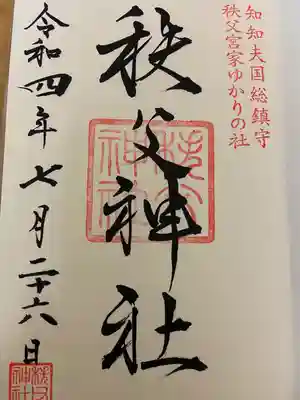 知知夫国総鎮守
秩父宮家ゆかりの社
秩父神社
令和四年七月二十六日
秩父神社